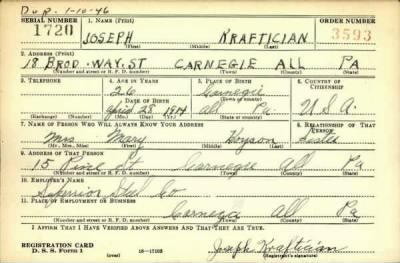 Dup. 1-10-46
SERIAL NUMBER 1. NAME (Print) ORDER NUMBER
1720 JOSEPH KRAFTICIAN 3593
(First) (Middle) (Last)
2. ADDRESS (Print)
18 BROD.WAY.ST CARNEGIE ALL PA
(Number and street or R. F. D. number) (Town) (County) (State)
3. TELEPHONE 4. AGE IN YEARS 5. PLACE OF BIRTH 6. COUNTRY OF CITIZENSHIP
26 Carnegie
DATE OF BIRTH (Town or county)
April 28 1914 All Pa. U.S.A.
(Exchange) (Number) (Mo.) (Day) (Yr.) (State or country)
7. NAME OF PERSON WHO WILL ALWAYS KNOW YOUR ADDRESS 8. RELATIONSHIP OF THAT PERSON
Mrs. Mary
(Mr., Mrs., Miss) (First) (Middle) (Last)
9. ADDRESS OF THAT PERSON
15 St Carnegie All Pa
(Number and street or R. F. D. number) (Town) (County) (State)
10. EMPLOYER'S NAME
Superior Steel Co
11. PLACE OF EMPLOYMENT OR BUSINESS
Carnegie All Pa
(Number and street or R. F. D. number) (Town) (County) (State)
I AFFIRM THAT I HAVE VERIFIED ABOVE ANSWERS AND THAT THEY ARE TRUE.
REGISTRATION CARD
D. S. S. Form 1 16-17105 Joseph Kraftician
(over) (Registrant's signature)